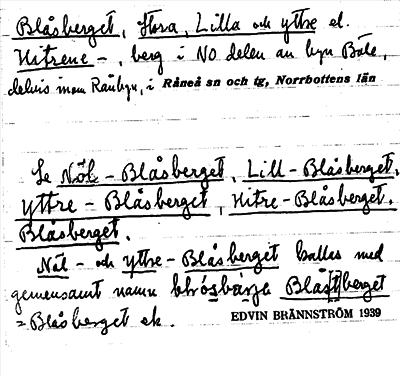 Blåsberget, Stora, Lilla och yttre el.
Hitrene-, berg i NO delen av byn Böle,
delvis inom Rånbyn, i Råneå sn och tg, Norrbottens län
Se Nöl-Blåsberget, Lill-Blåsberget,
Yttre-Blåsberget, Hitre-Blåsberget,
Blåsberget.
Nöl- och Yttre-Blåsberget kallas med
gemensamt namn Blås[t]berget
=Blåsberget ek.
EDVIN BRÄNNSTRÖM 1939